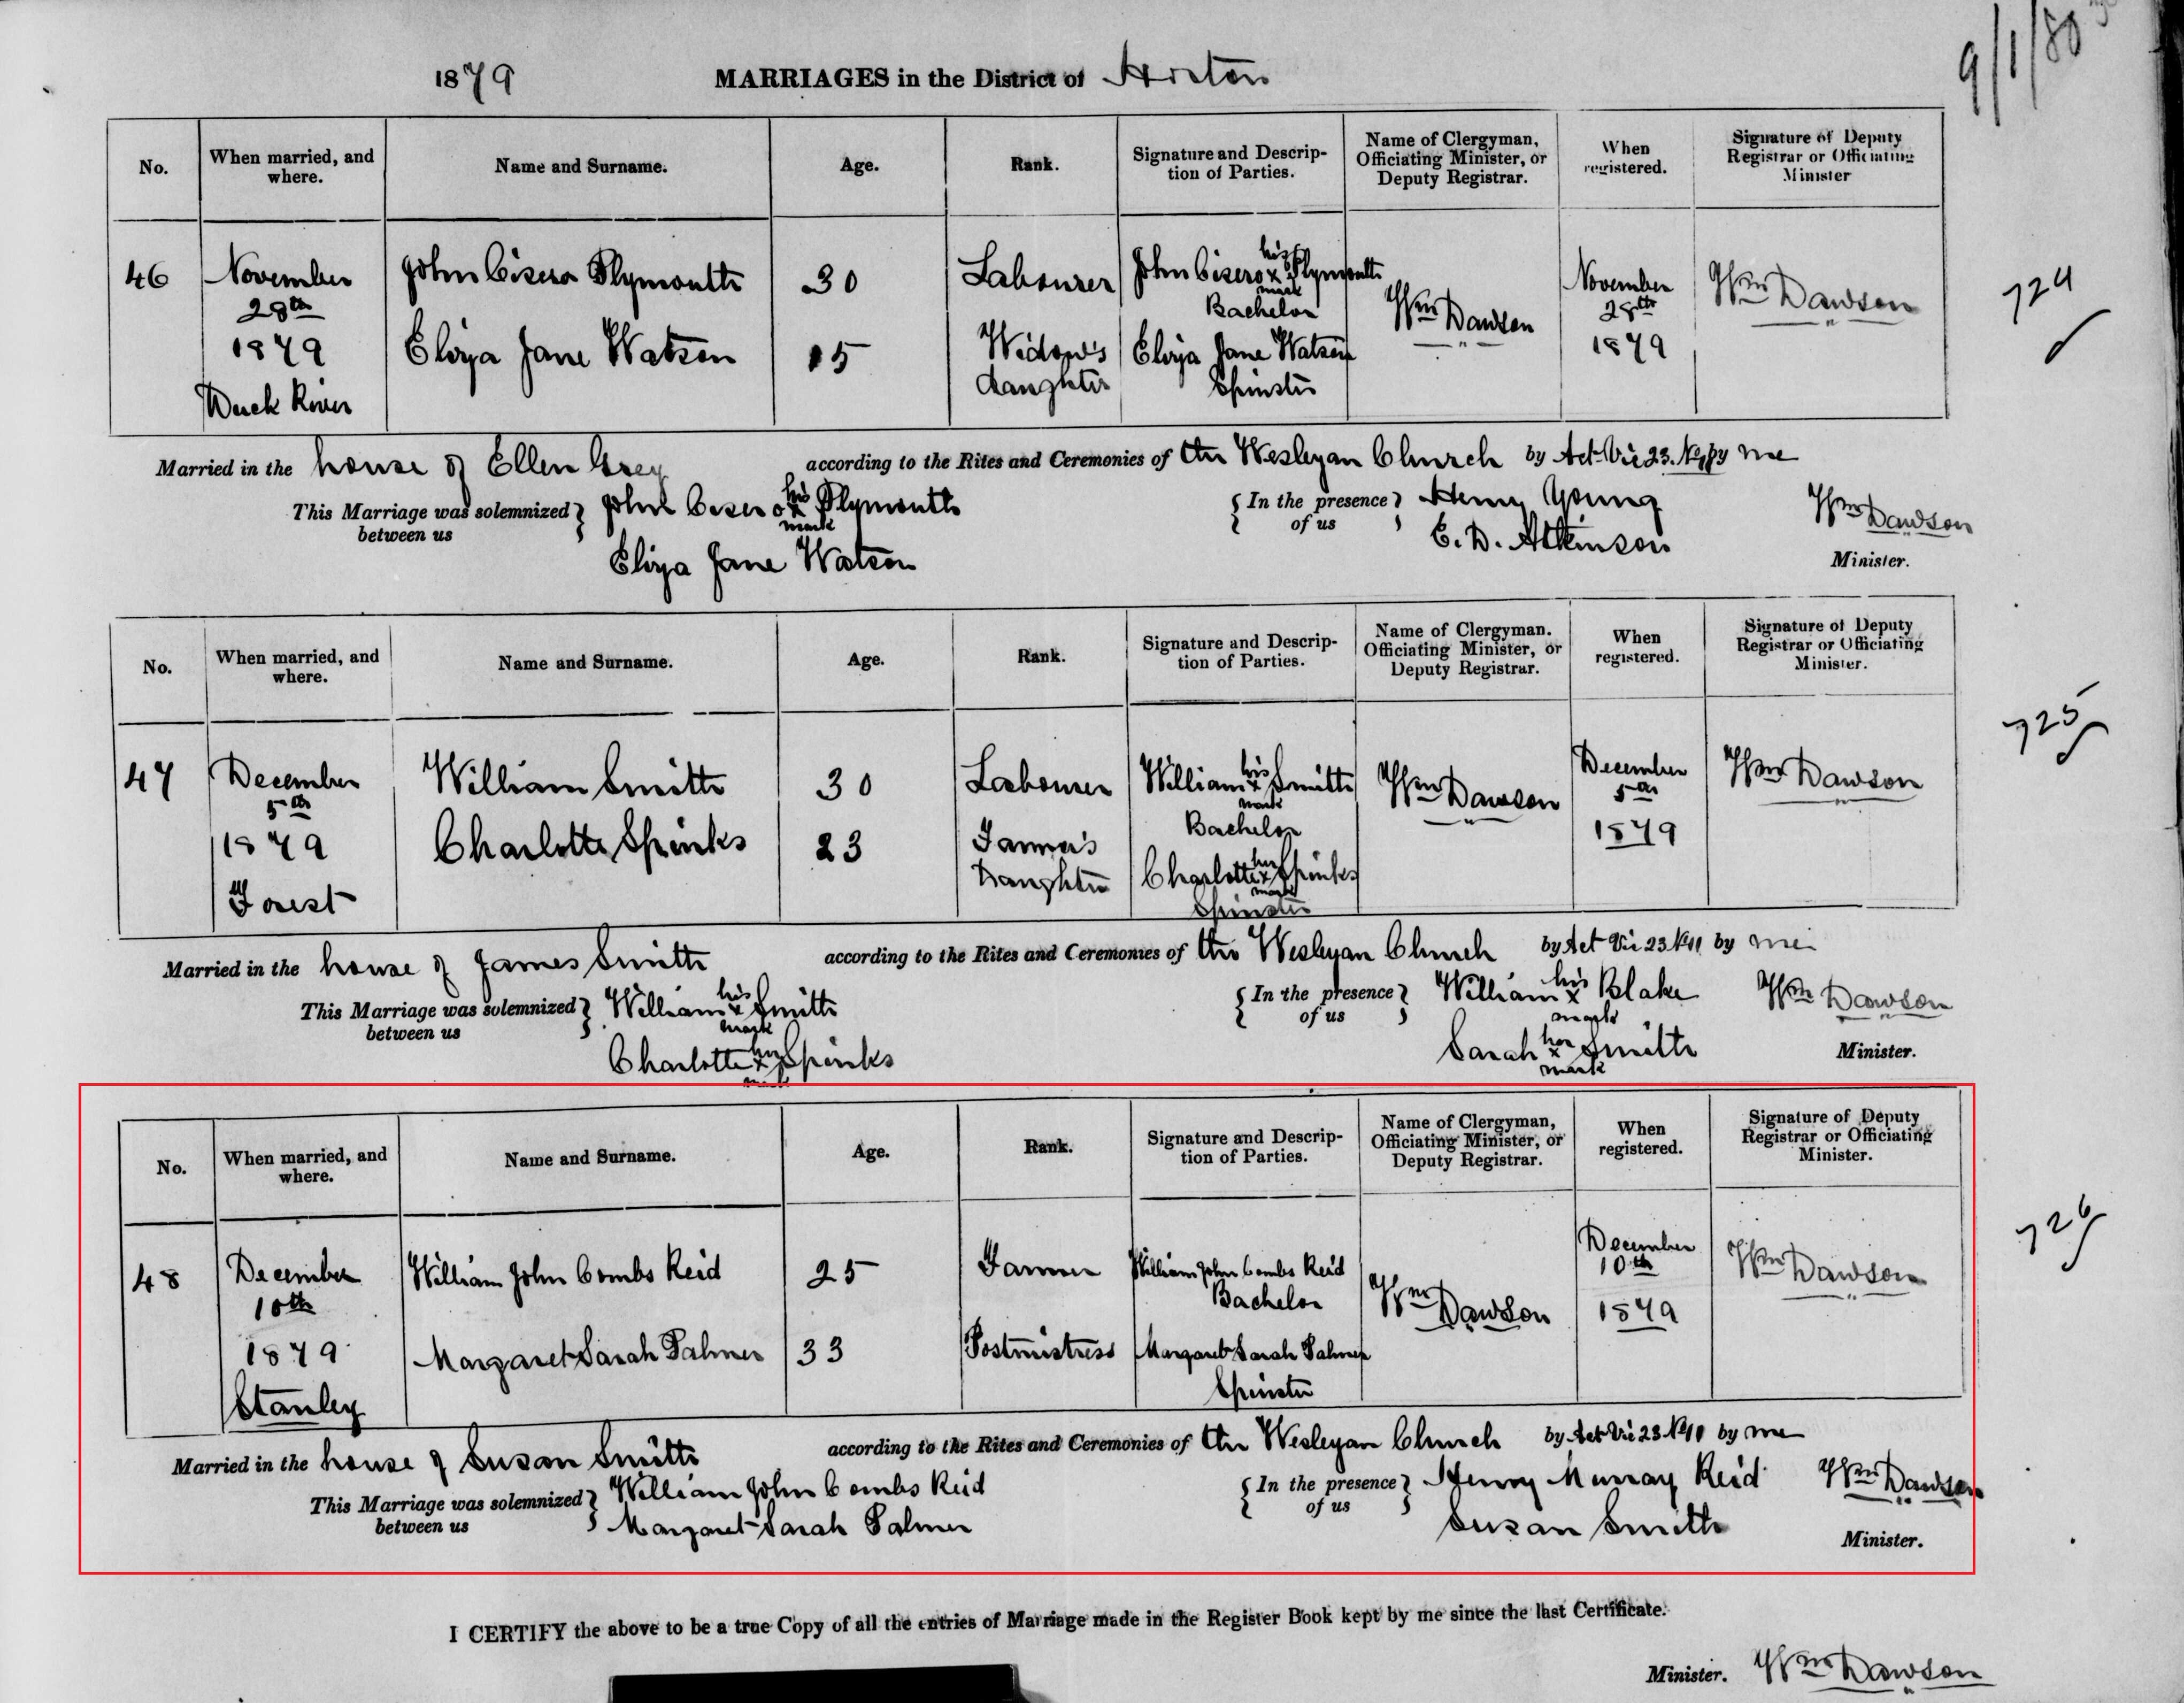 9/1/80
1879 MARRIAGES in the District of Horton
No. When married, and where. Name and Surname. Age. Rank. Signature and Description of Parties. Name of Clergyman, Officiating Minister, or Deputy Registrar. When registered. Signature of Deputy Registrar or Officiating Minister
46 November 28th 1879 Duck River
John Cisero Plymouth 30 Labourer John Cisero his x mark Plymouth Bachelor
Eliza Jane Watson 15 Widow's daughter Eliza Jane Watson Spinster
Wm Dawson November 28th 1879 Wm Dawson
724
Married in the house of Ellen Grey according to the Rites and Ceremonies of the Wesleyan Church by Act Vic 23. No by me
This Marriage was solemnized between us John Cisero his x mark Plymouth
Eliza Jane Watson
In the presence of us Henry Young
E. D. Atkinson
Wm Dawson
Minister.
No. When married, and where. Name and Surname. Age. Rank. Signature and Description of Parties. Name of Clergyman. Officiating Minister, or Deputy Registrar. When registered. Signature of Deputy Registrar or Officiating Minister.
47 December 5th 1879 Forest
William Smith 30 Labourer William his x mark Smith Bachelor
Charlotte Spinks 23 Farmer's Daughter Charlotte her x mark Spinks Spinster
Wm Dawson December 5th 1879 Wm Dawson
725
Married in the house of James Smith according to the Rites and Ceremonies of the Wesleyan Church by Act Vic 23 No 11 by me
This Marriage was solemnized between us William his x mark Smith
Charlotte her x mark Spinks
In the presence of us William his x mark Blake
Sarah her x mark Smith
Wm Dawson
Minister.
No. When married, and where. Name and Surname. Age. Rank. Signature and Description of Parties. Name of Clergyman, Officiating Minister, or Deputy Registrar. When registered. Signature of Deputy Registrar or Officiating Minister.
48 December 10th 1879 Stanley
William John Combs Reid 25 Farmer William John Combs Reid Bachelor
Margaret Sarah Palmer 33 Postmistress Margaret Sarah Palmer Spinster
Wm Dawson December 10th 1879 Wm Dawson
726
Married in the house of Susan Smith according to the Rites and Ceremonies of the Wesleyan Church by Act Vic 23 No 11 by me
This Marriage was solemnized between us William John Combs Reid
Margaret Sarah Palmer
In the presence of us Henry Murray Reid
Susan Smith
Wm Dawson
Minister.
I CERTIFY the above to be a true Copy of all the entries of Marriage made in the Register Book kept by me since the last Certificate.
Minister. Wm Dawson